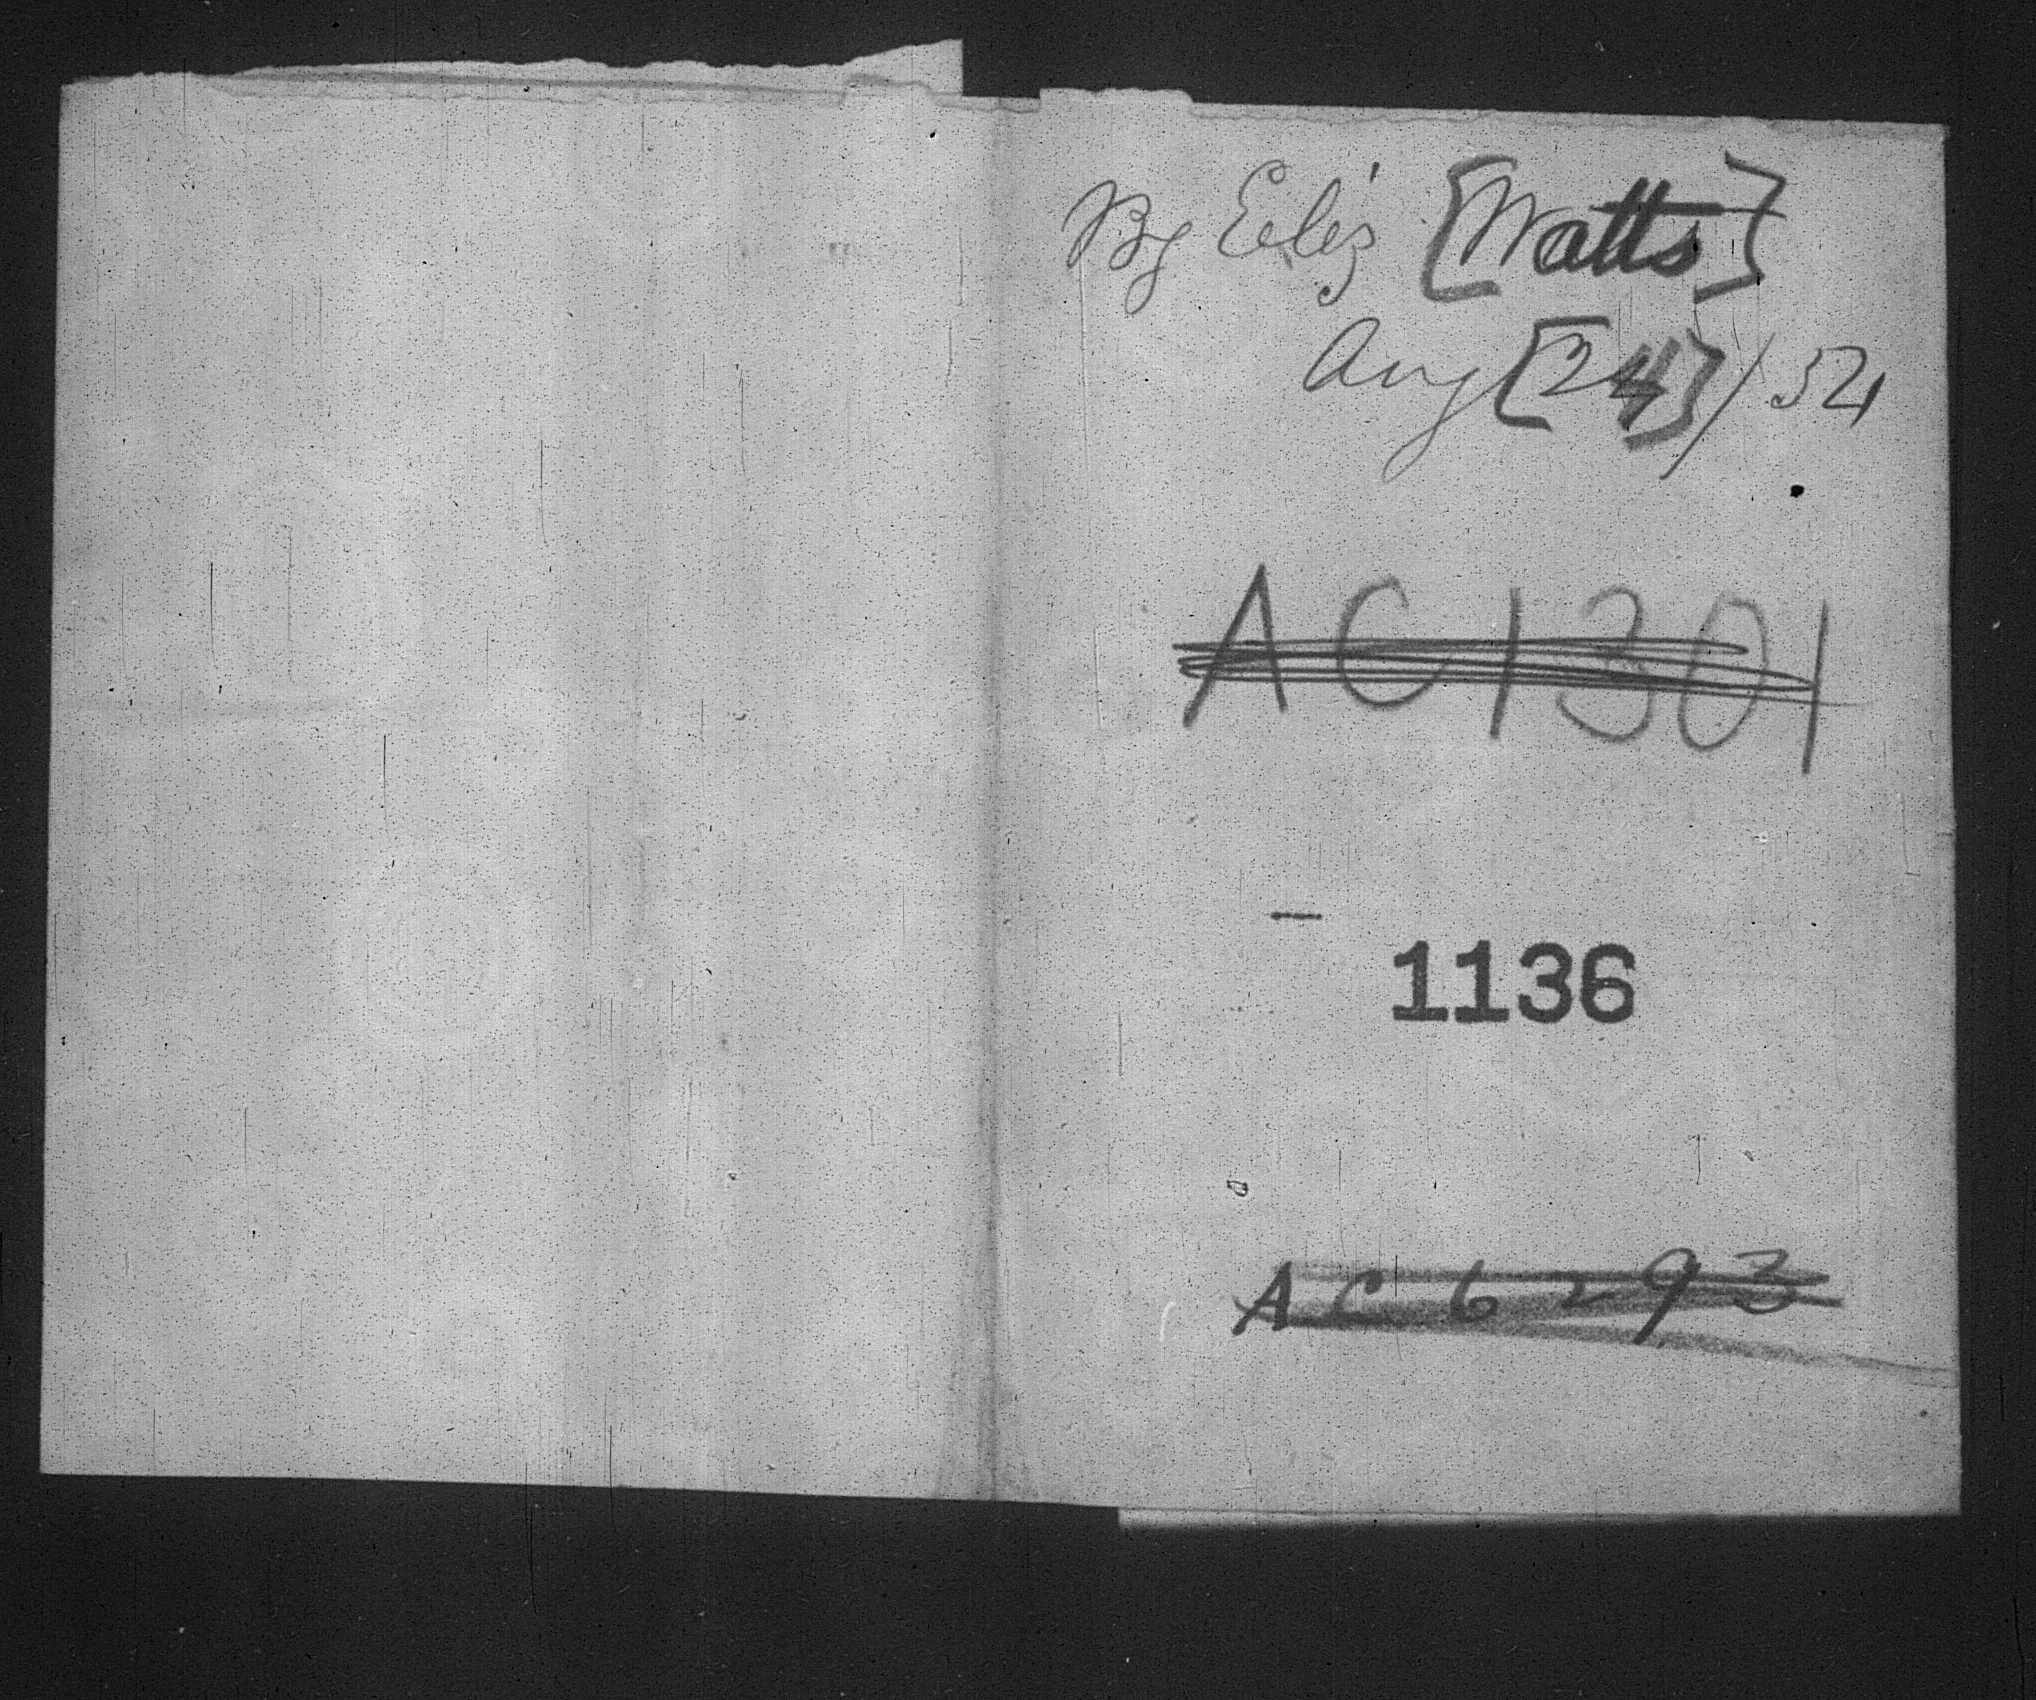 By Eliz' [Watts]
Aug [24]/32
AC1301
1136
AC 6293